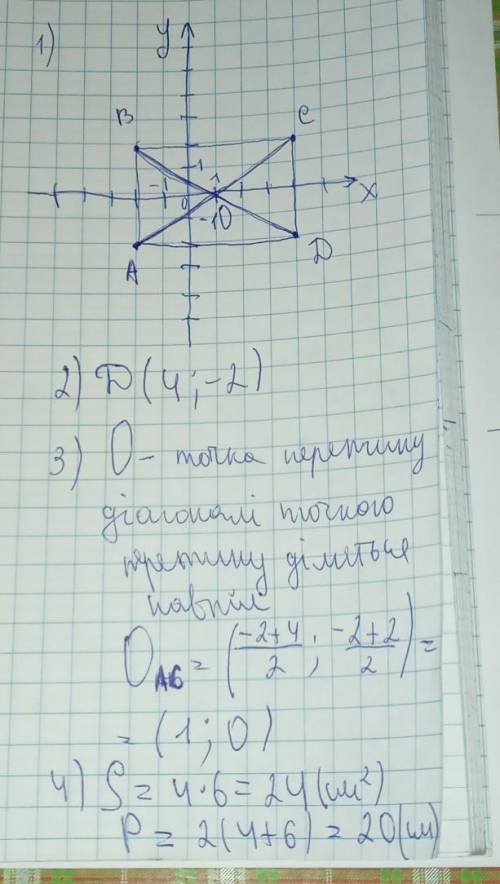 1)
y
B
C
1
-1
1
0
x
-1
O
A
D
2) D(4;-2)
3) O - точка перетину
діагоналі точкою
перетину діляться
навпіл
O = (-2+4/2 ; -2+2/2) =
= (1;0)
4) S = 4·6 = 24(см²)
P = 2(4+6) = 20(см)